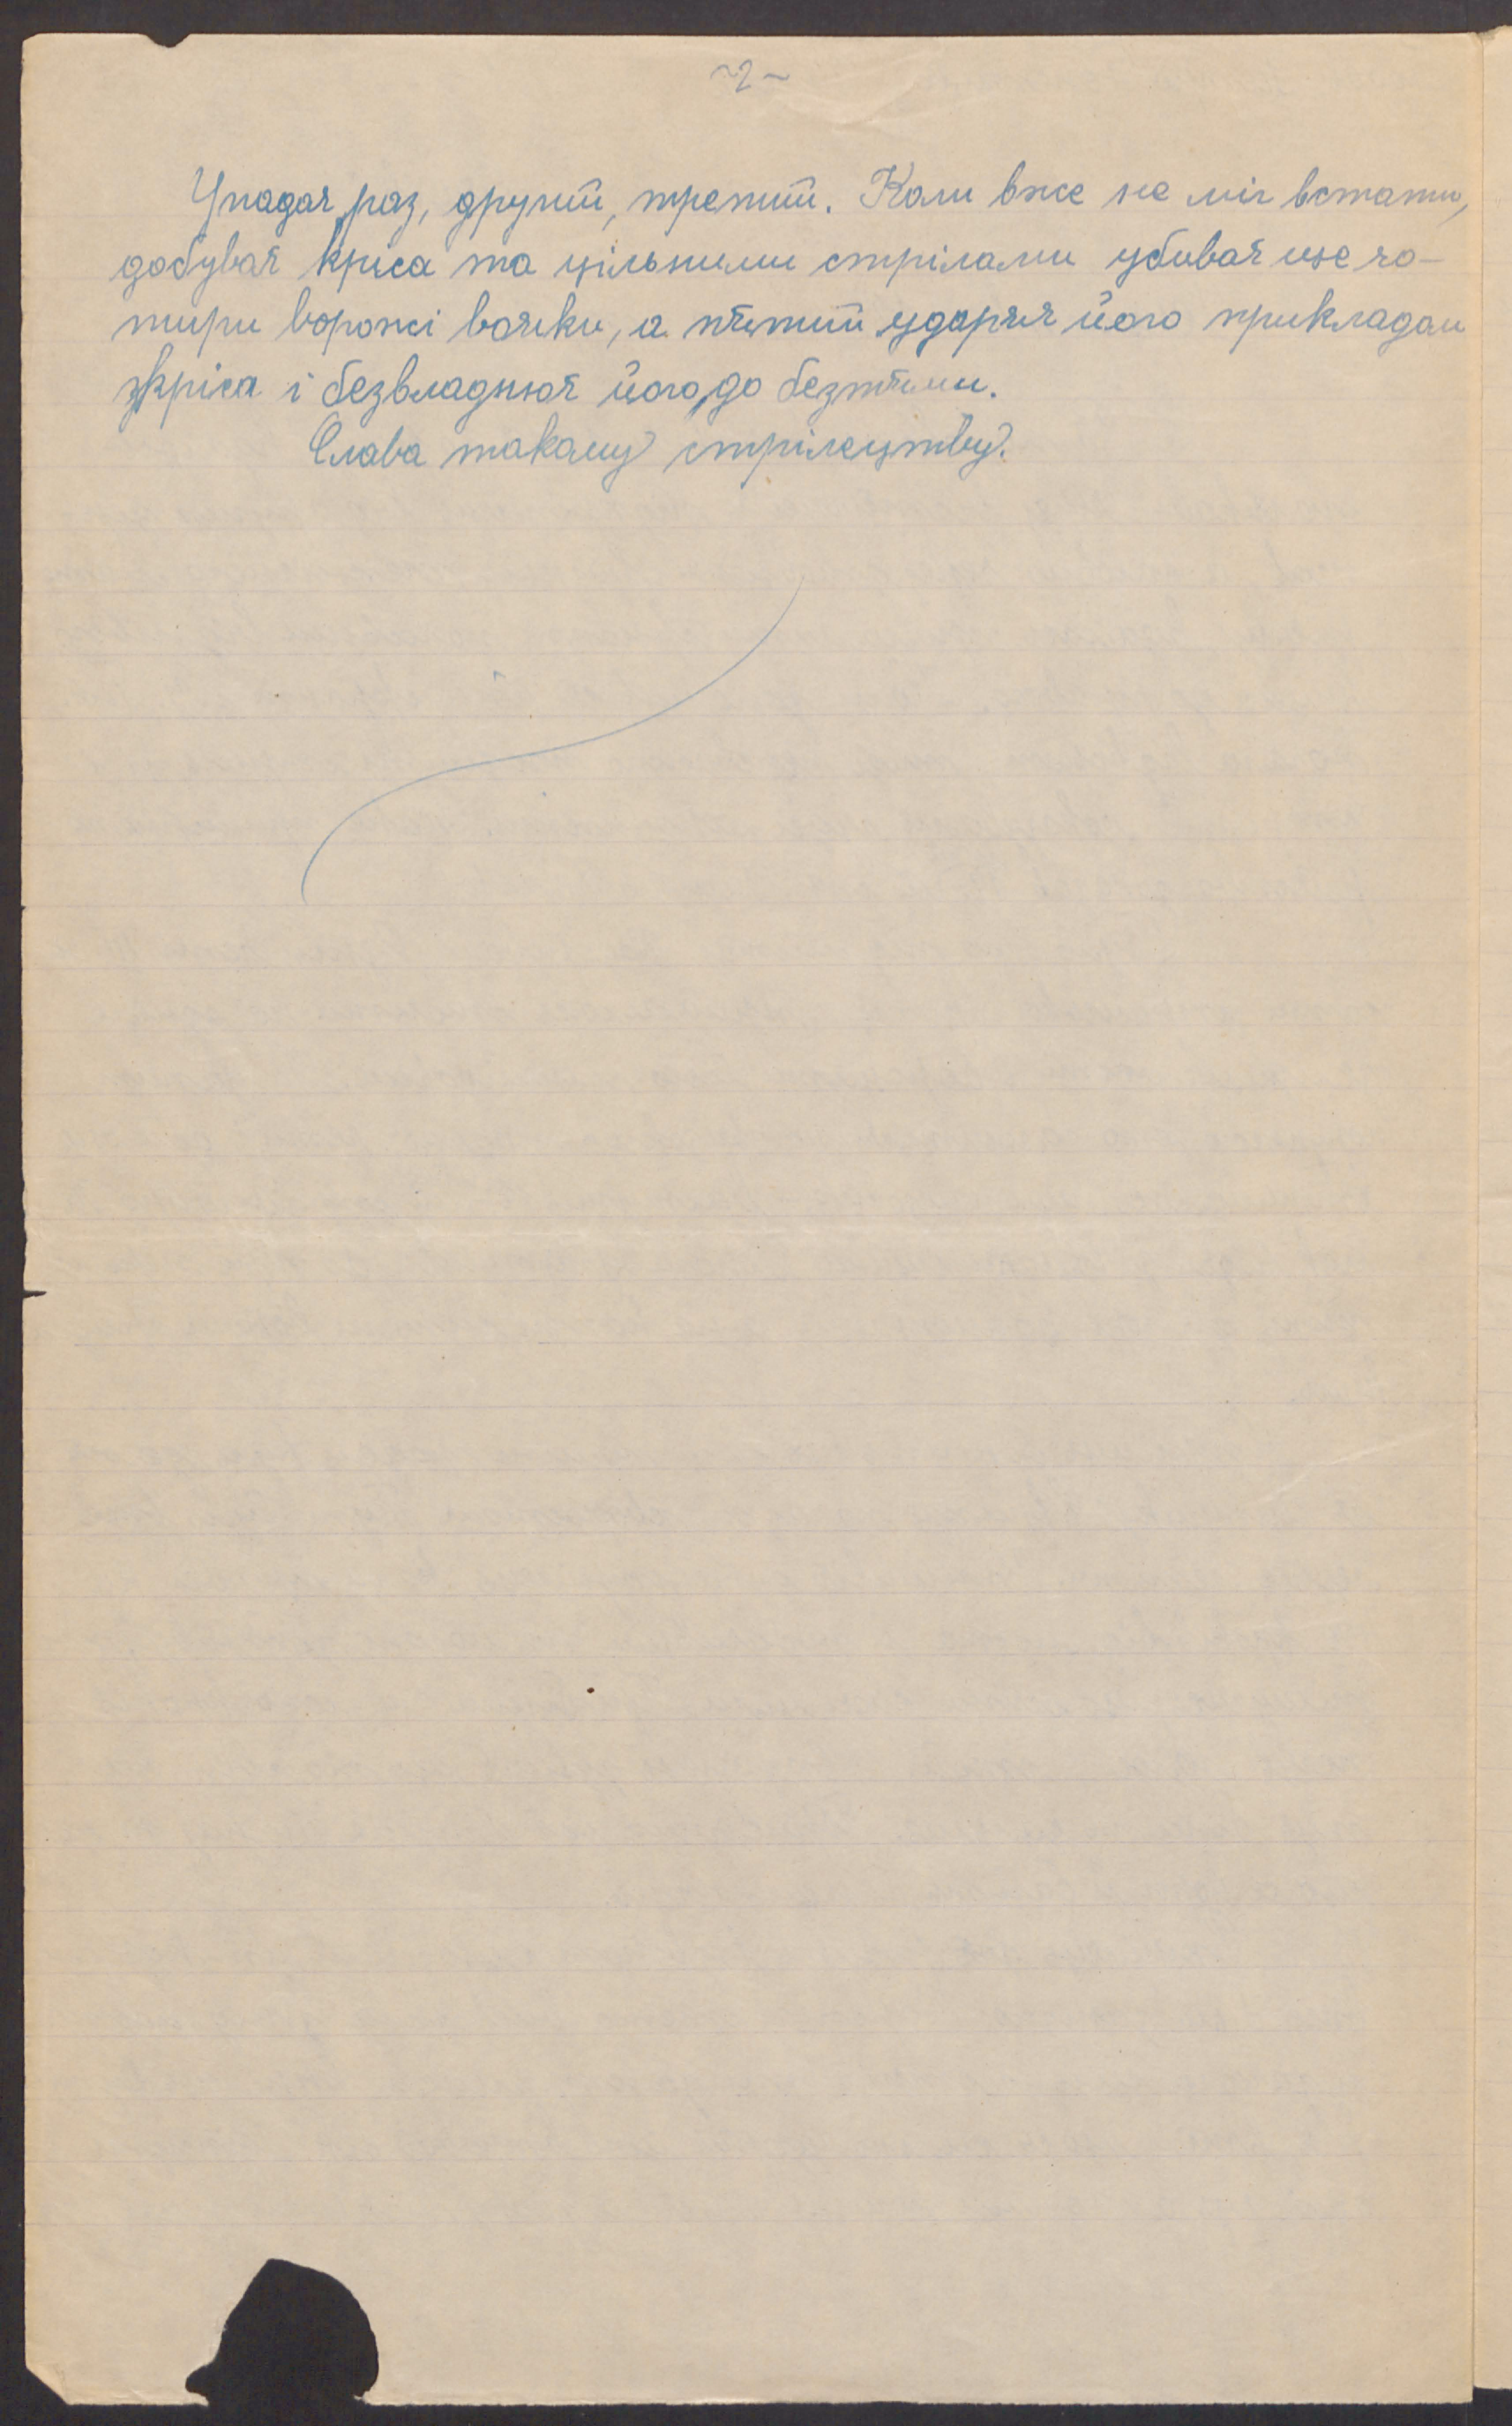 ~2~
Упадає раз, другий, третий. Коли вже не міг встати,
добуває кріса та цільними стрілами убиває ще чо-
тири ворожі вояки, а пятий ударяє його прикладом
кріса і безвладнює його до безтями.
Слава такому стрілецтву.